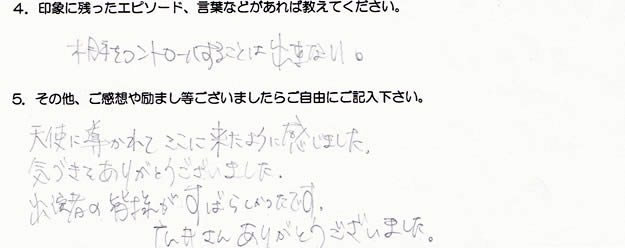 4. 印象に残ったエピソード、言葉などがあれば教えてください。
相手をコントロールすることは出来ない。
5. その他、ご感想や励まし等ございましたらご自由にご記入下さい。
天使に導かれて ここに来たように感じました。
気づきをありがとうございました。
出演者の皆様がすばらしかったです。
広井さん ありがとうございました。